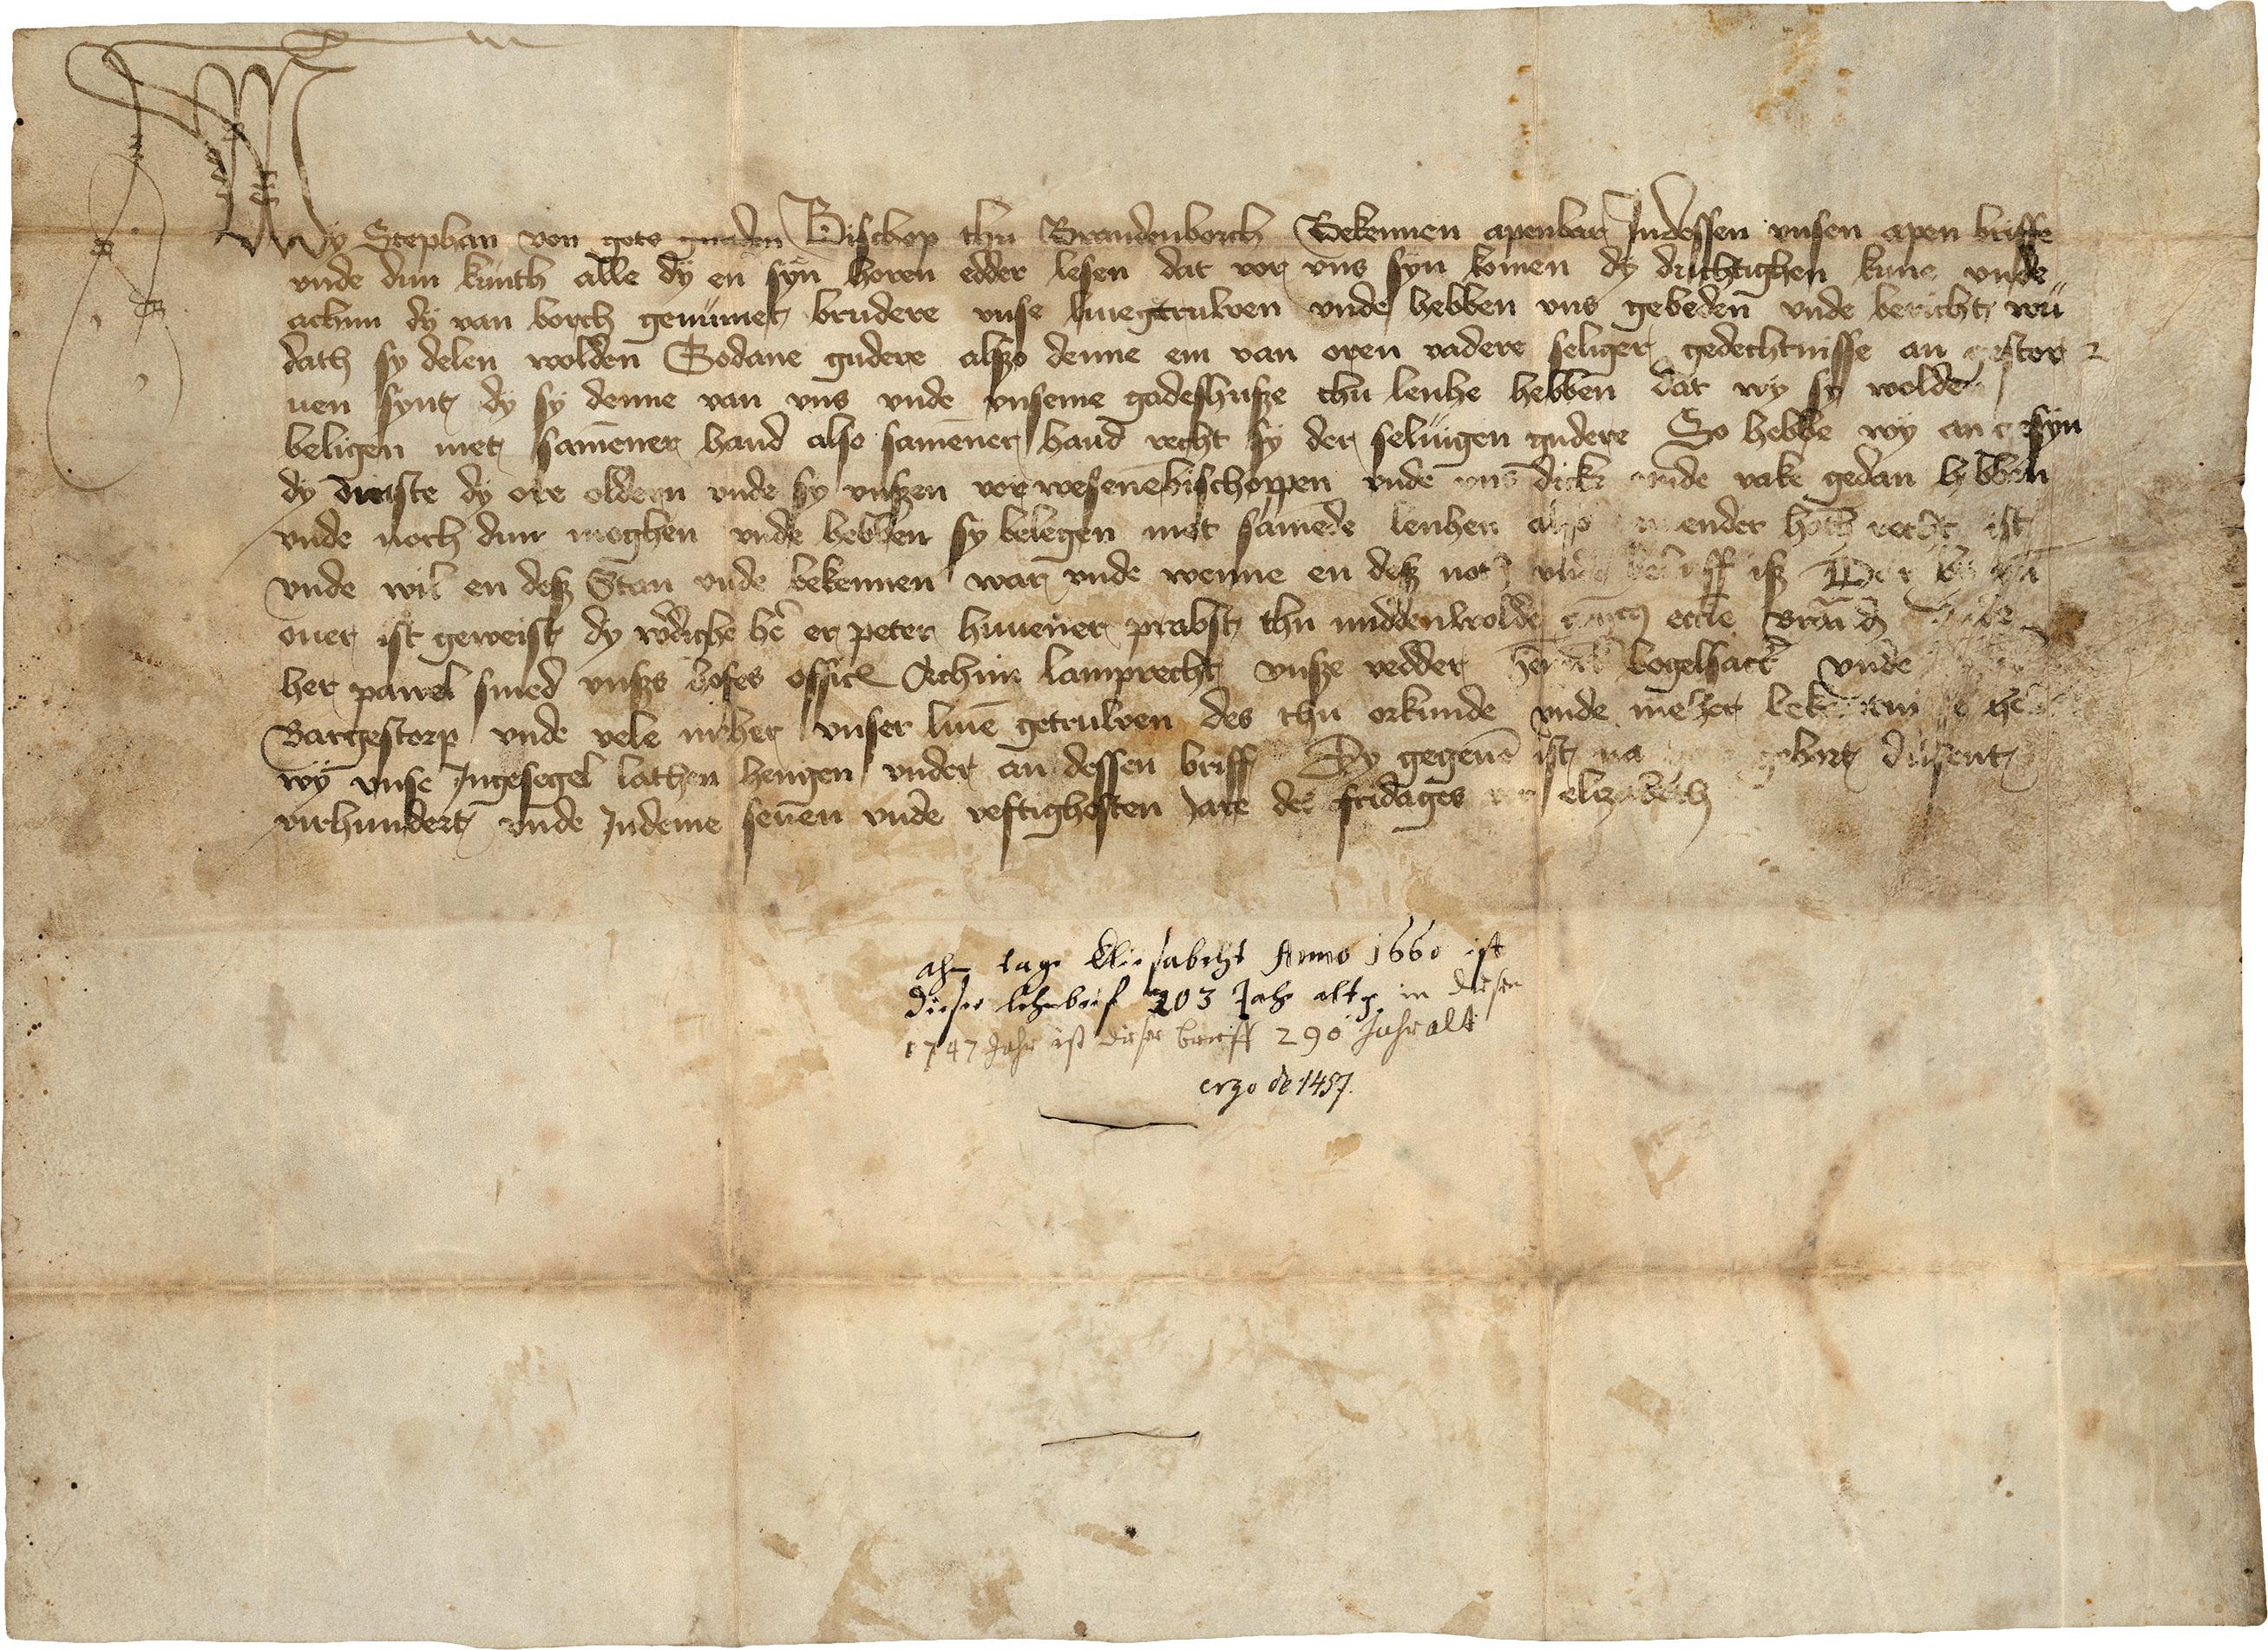 Wy Stephan von gots gnaden Bischop thu Brandenborch Bekennen apenbar Indessen vnsen apen briffe
vnde dun kunth alle dy en syn horen edder lesen dat vor vns syn komen dy duchtighen kune vnde
achim dy van borch genumet brudere vnse liuegetruwen vnde hebben vns gebeden vnde bericht wu
dath sy delen wolden Sodane gudere alszo denne em van oren vadere seliger gedechtnisse an gestor
uen synt dy sy denne van vns vnde vnseme gadeshusze thu lenhe hebben dat wy sy wolden
beligen met samener hand also samener hand recht sy der seluigen gudere So hebbe wy an gesyn
dy dinste dy ore oldern vnde sy vnszen vorwesene bischoppen vnde vns dicke vnde vake gedan hebben
vnde noch dun moghen vnde hebben sy belegen met samede lenhen also ender hath recht ist
vnde wil en desz Stan vnde bekennen war vnde wenne en desz noth vnde behuff isz
ouer ist geweist dy wdiche he er peter huuener prabst thu middenwolde eccle Brand
her pawel smed vnszs hofes official Achim lamprecht vnsze vedder vogelsack vnde
Bargestorp vnde vele meher vnser liue getruwen des thu orkunde vnde meher
wy vnse Ingesegel lathen hengen vnder an dessen briff Dy gegeue ist na gebort dusent
virhundert vnde Indeme seuen vnde veftighesten Jare des fridages elizabeth
ahm tage Eliesabeht Anno 1660 ist
dieser lehnbrif 203 Jahr alt in diesen
1747 Jahr ist dieser brieff 290 Jahr alt
ergo de 1457.